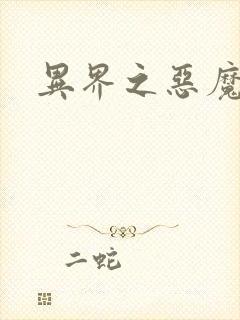 異界之惡魔
二蛇